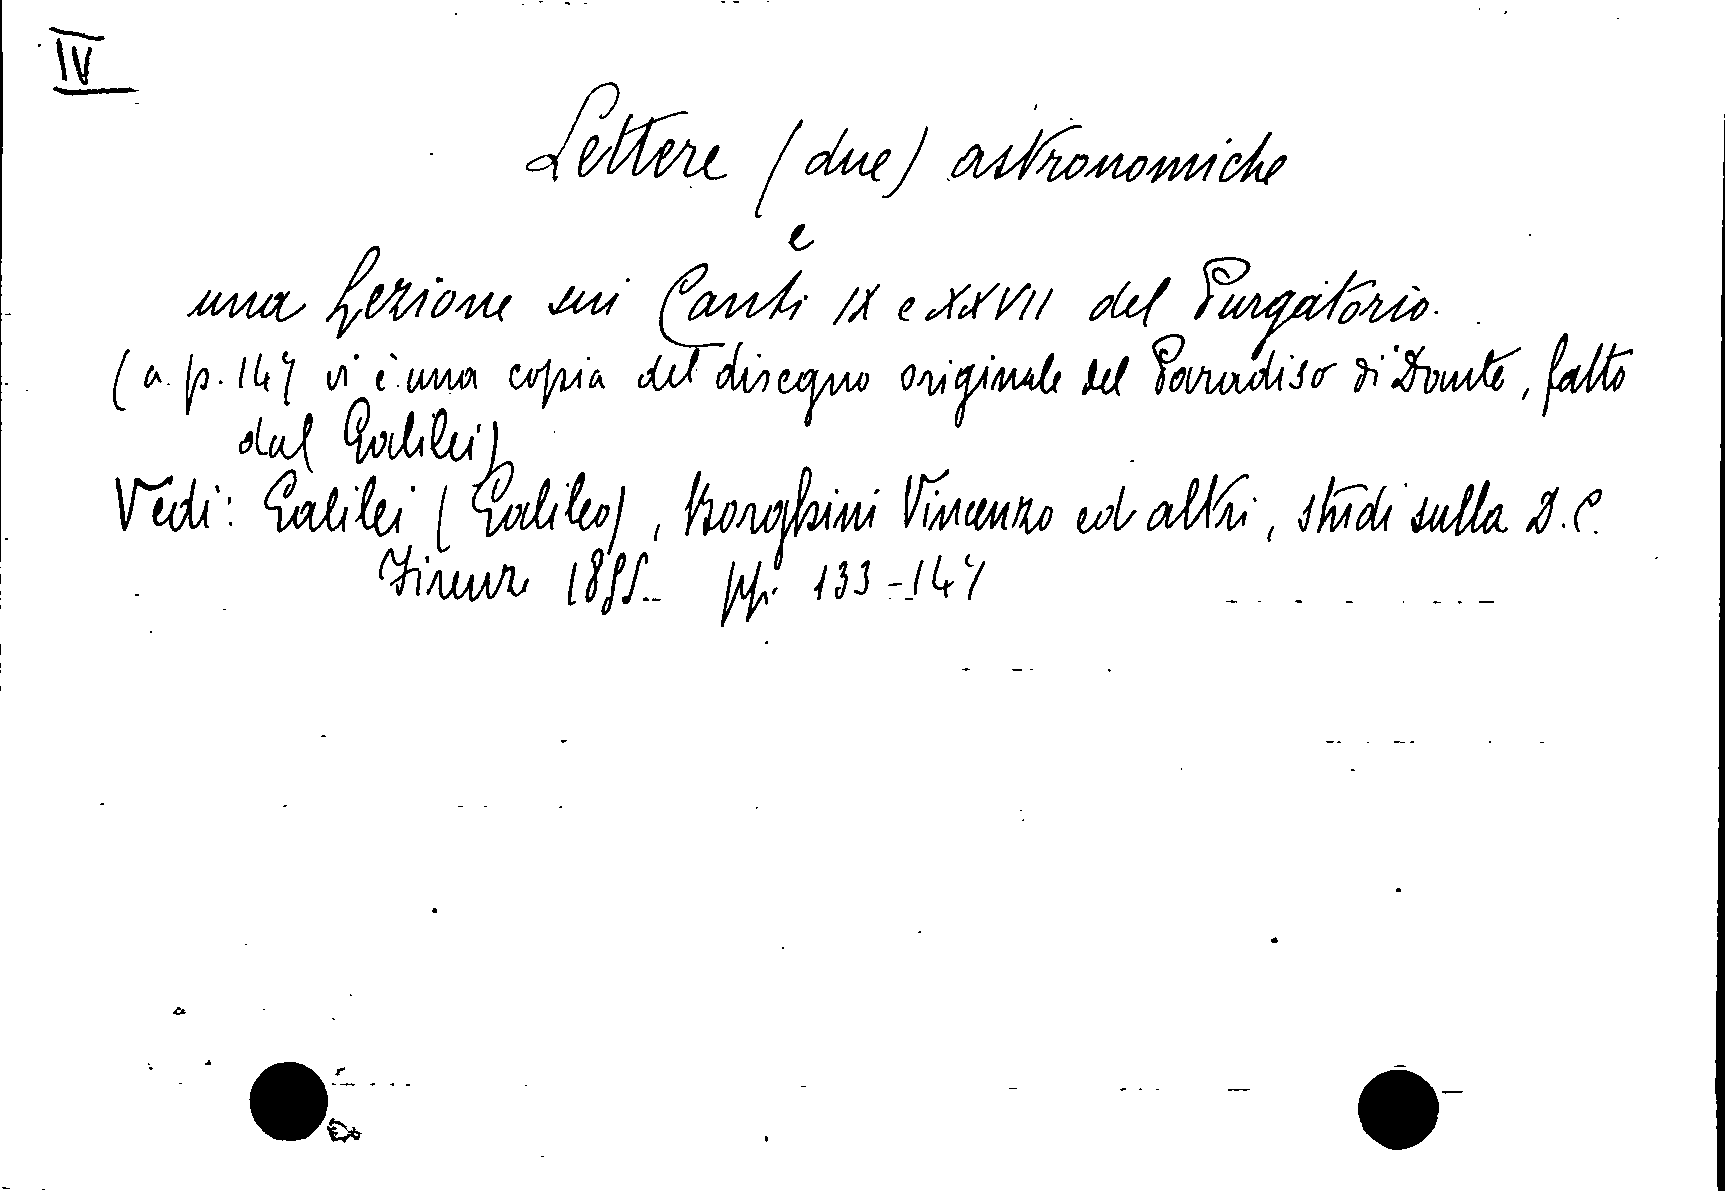 IV
Lettere (due) astronomiche
e
una Lezione sui Canti IX e XXVII del Purgatorio.
(a. p. 147 vi è una copia del disegno originale del Paradiso di Dante, fatto
dal Galilei)
Vedi: Galilei (Galileo), Borghini Vincenzo ed altri, studi sulla D.C.
Firenze 1855. pp. 133-147